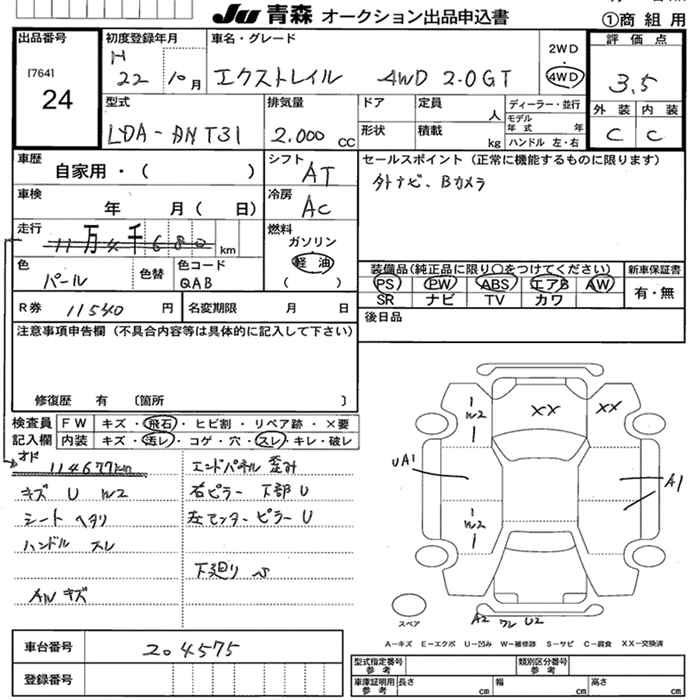 JU 青森 オークション出品申込書
①商 組 用
出品番号
[764]
24
初度登録年月
H
22 10 月
車名・グレード
エクストレイル 4WD 2.0GT
2WD
4WD
評 価 点
3.5
外 装 内 装
C C
型式
LDA-DNT31
排気量
2.000 CC
ドア
定員
人
形状
積載
kg
ディーラー・並行
モデル年式 年
ハンドル 左・右
車歴
自家用・( )
シフト
AT
セールスポイント (正常に機能するものに限ります)
外ナビ、Bカメラ
車検
年 月( 日)
冷房
AC
走行
11 万 4 千 6 8 0 km
燃料
ガソリン
軽 油
( )
色
パール
色替
色コード
QAB
装備品(純正品に限り○をつけてください)
PS PW ABS エアB AW
SR ナビ TV カワ
新車保証書
有・無
R券 11540 円
名変期限 月 日
後日品
注意事項申告欄 (不具合内容等は具体的に記入して下さい)
修復歴 有 〔箇所 〕
検査員
記入欄
FW キズ・飛石・ヒビ割・リペア跡・×要
内装 キズ・汚レ・コゲ・穴・スレ・キレ・破レ
オド
114677km
キズ U W2
シート ヘタリ
ハンドル スレ
AW キズ
エンドパネル 歪み
右ピラー 下部 U
左センター ピラー U
下廻り
W2
XX
XX
UA1
A1
W2
スペア
A2 ワレ U2
A-キズ E-エクボ U-凹み W-補修跡 S-サビ C-腐食 XX-交換済
車台番号
204575
登録番号
型式指定番号
参 考
類別区分番号
参 考
車庫証明用
参 考
長さ cm
幅 cm
高さ cm